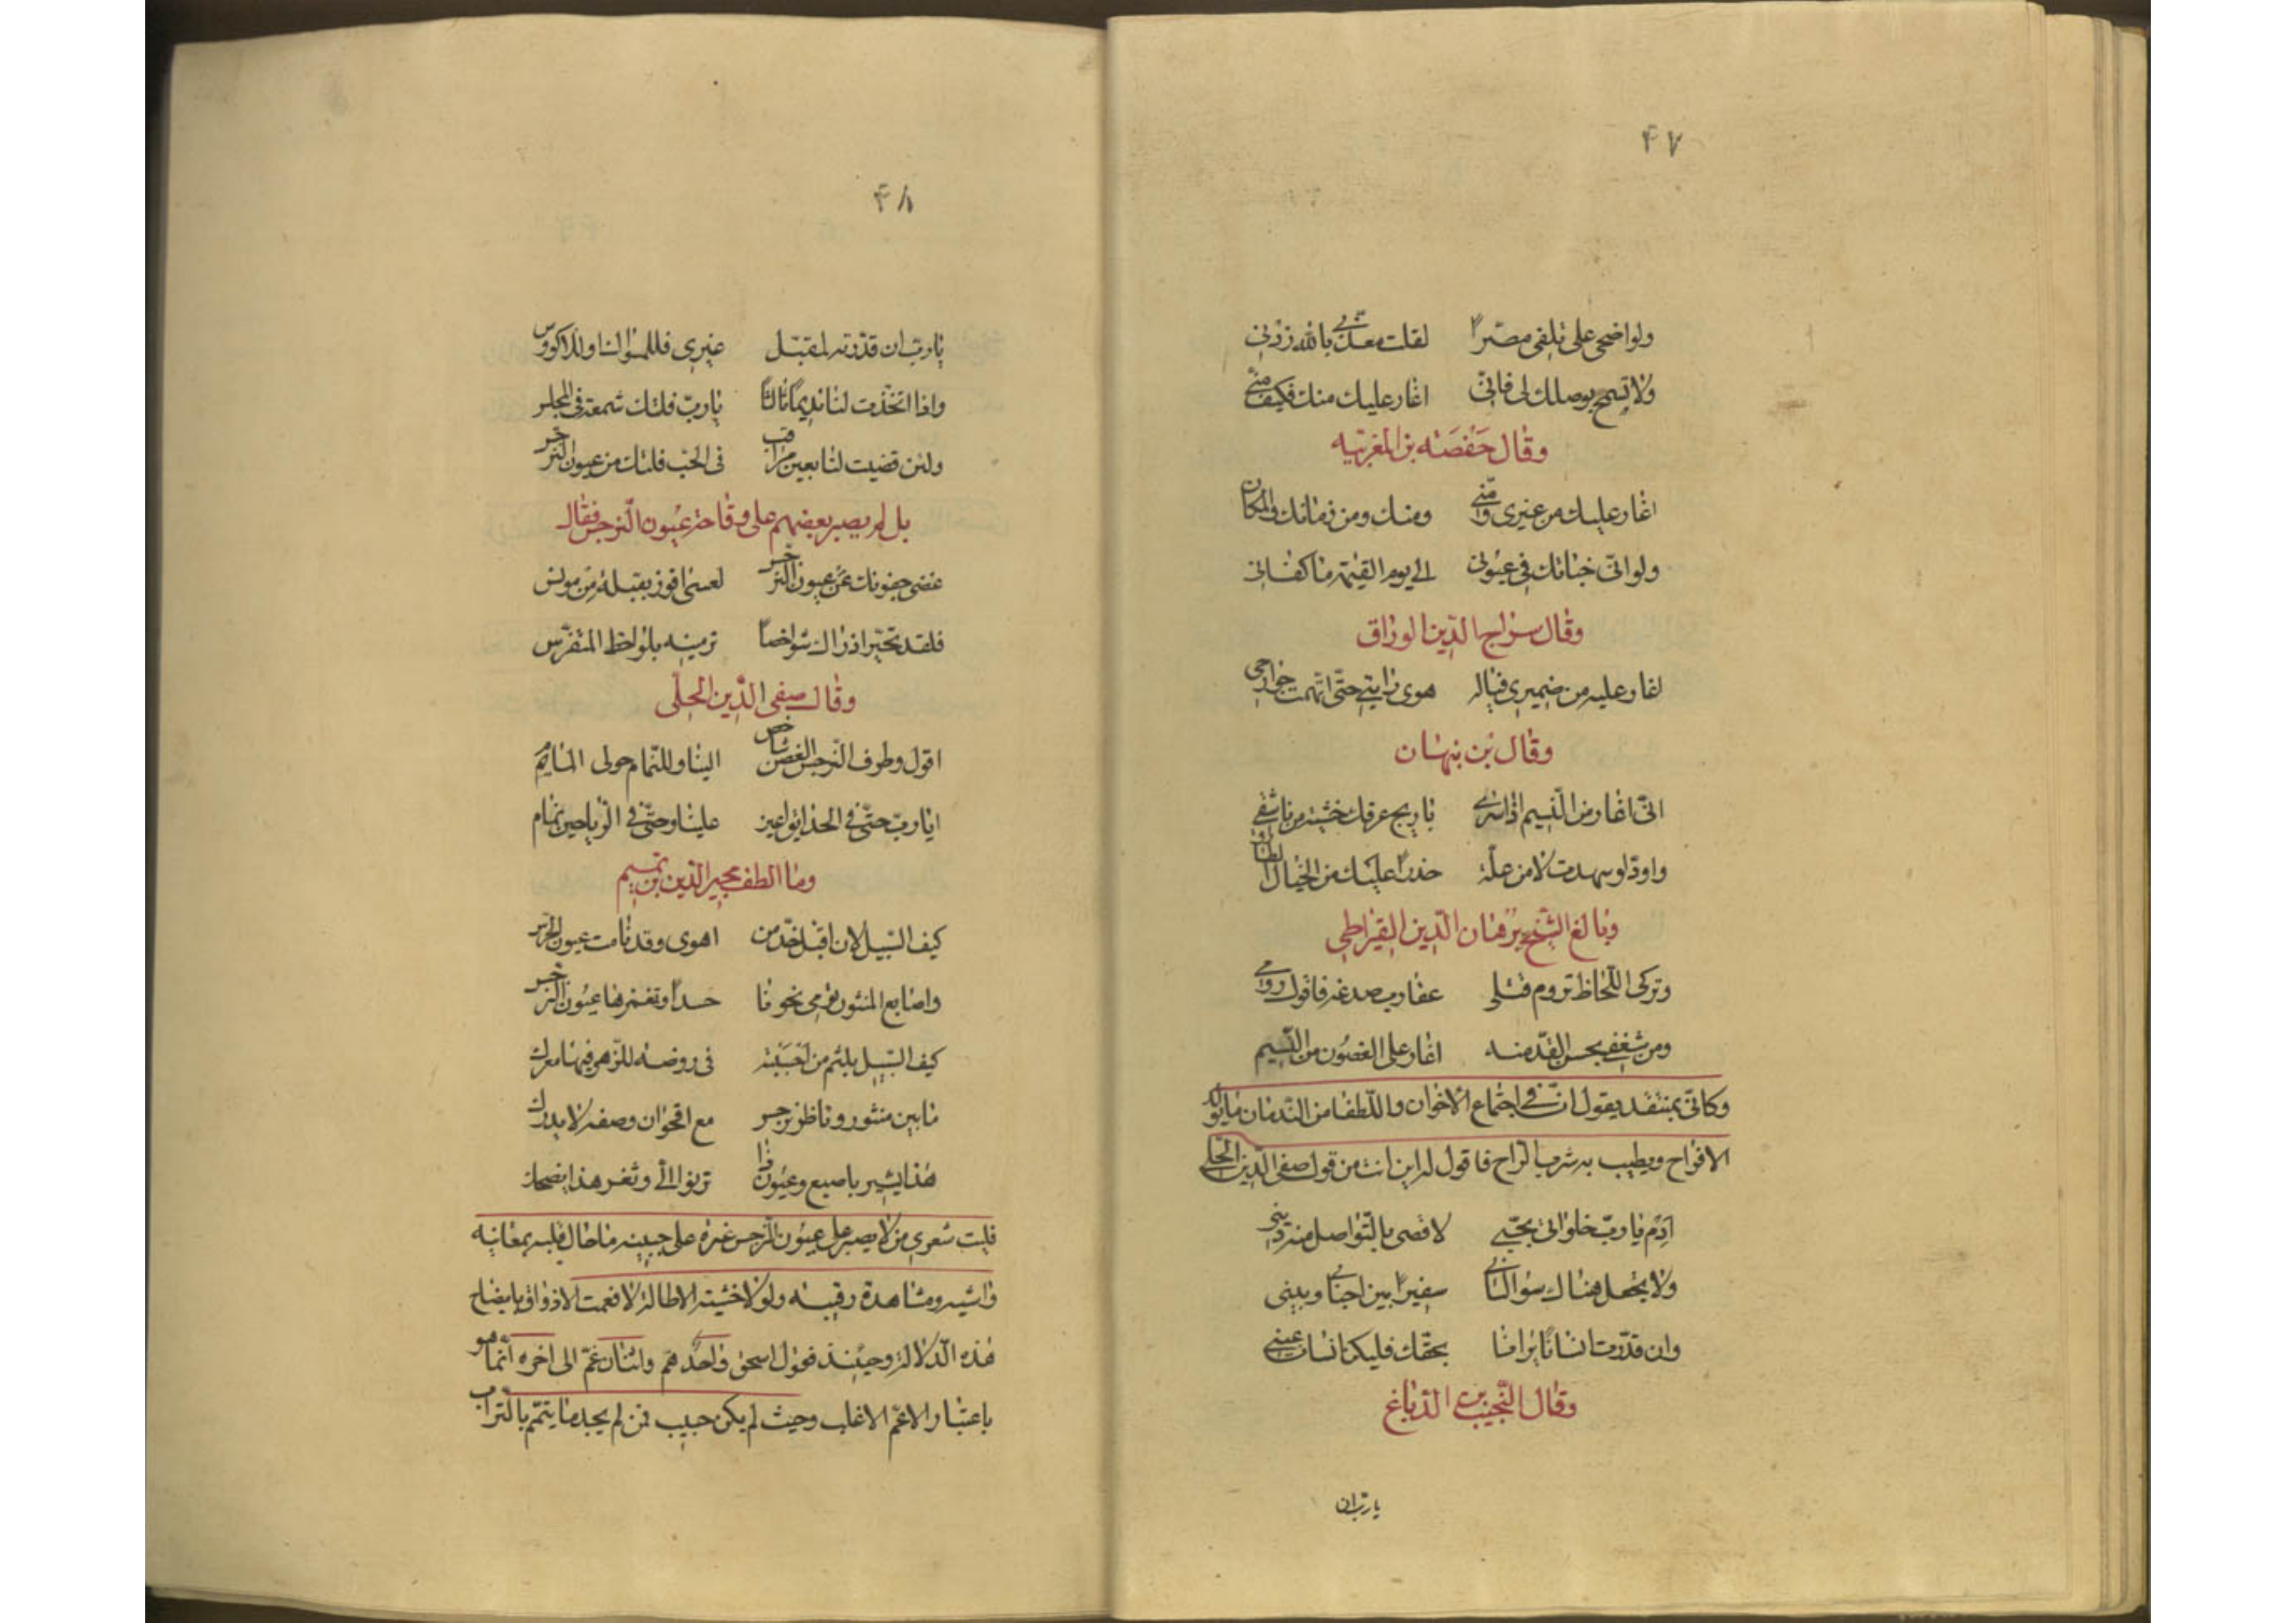 ۴۷
ولو اضحی علی تلفی مصرّاً لقلت معذّبی بالله زدنی
ولا تسمح بوصلك لی فانّی اغار علیك منك فكیف منّی
وقال حَفْصَه بن المغربیه
اغار علیك من غیری ومنّی ومنك ومن زمانك والمكان
ولو انّی خباتك فی عیونی الی یوم القیٰمة ما كفانی
وقال سراج الدّین الوراق
اغار علیه من ضمیری فیاله هوی رابنی حتّی اتّهمت جوارحی
وقال بن بنهان
انّی اغار من النّسیم اذا سری باریج عرفك خشیة من ناشق
واودّ لو سهدت لا من علّة حذراً علیك من الخیال الطارق
وبالغ الشّیخ برهان الدّین القیراطی
وتركی اللّحاظ تروم قتلی عقارب صدغه فاقول روامی
ومن شغفی بحسن القدّ منه اغار علی الغصون من النّسیم
وكانّی بمنتقد یقول انّ فی اجتماع الاخوان واللّطفا من النّدمان ما یولد
الافراح ویطیب به شرب الرّاح فاقول له این انت من قول صفی الدّین الحلّی
اَدِمْ یا ربّ خلواتی بحبّی لاقضی بالتّواصل منه دینی
ولا تجعل هناك سؤالنا لی سفیراً بین احبابی وبینی
وان قدّرت انساناً یرانا بحقّك فلیكن انسان عینی
وقال النّجیب بن الدّباغ
یا ربّ ان
۴۸
یا ربّ ان قدّرته لمقبّل غیری فللمسواك او للاكووس
واذا اتّخذت لنا ندیماً ثالثاً یا ربّ فلتك شمعة فی المجلس
ولئن قضیت لنا بعین مراقب فی الحبّ فلتك من عیون النرجس
بل لم یصبر بعضهم علی وقاحة عیون النّرجس فقال
غضی جفونك عن عیون النرجس لعسی افوز بقبلة من مونس
فلقد تحیّر اذ راك شواخصاً ترمینه بلواحظ المتفرّس
وقال صفی الدّین الحلّی
اقول وطرف النّرجس الغضّ شاخص الینا وللنّمام حولی المام
ایا ربّ حتّی فی الحدایق اعین علینا وحتّی فی الرّیاحین نمّام
وما الطف مجیر الدّین بن تمیم
كیف السّبیل لان اقبّل خدّ من اهوی وقد نامت عیون الحرّس
واصابع المنثور تومی نحونا حسداً وتغمزها عیون النرجس
كیف السّبیل بلثم من احببته فی روضة للزّهر فیها معرك
ما بین منثور وناظر نرجس مع اقحوان وصفه لا یدرك
هذا یشیر باصبع وعیون ذا ترنوا الیّ وثغر هذا یضحك
فلیت شعری من لا یصبر علی عیون النّرجس غیرة علی حبیبه ما حال قلبه بمعاینه
واشیه ومشاهدة رقیبه ولولا خشیة الاطالة لافعمت الاذواق بایضاح
هذه الدّلالة وحینئذ فقول اسحق واحدٌ همّ واثنان غمّ الی اخره انّما هو
باعتبار الاعمّ الاغلب وحیث لم یكن حبیب فمن لم یجد ما یتمّم بالتراب